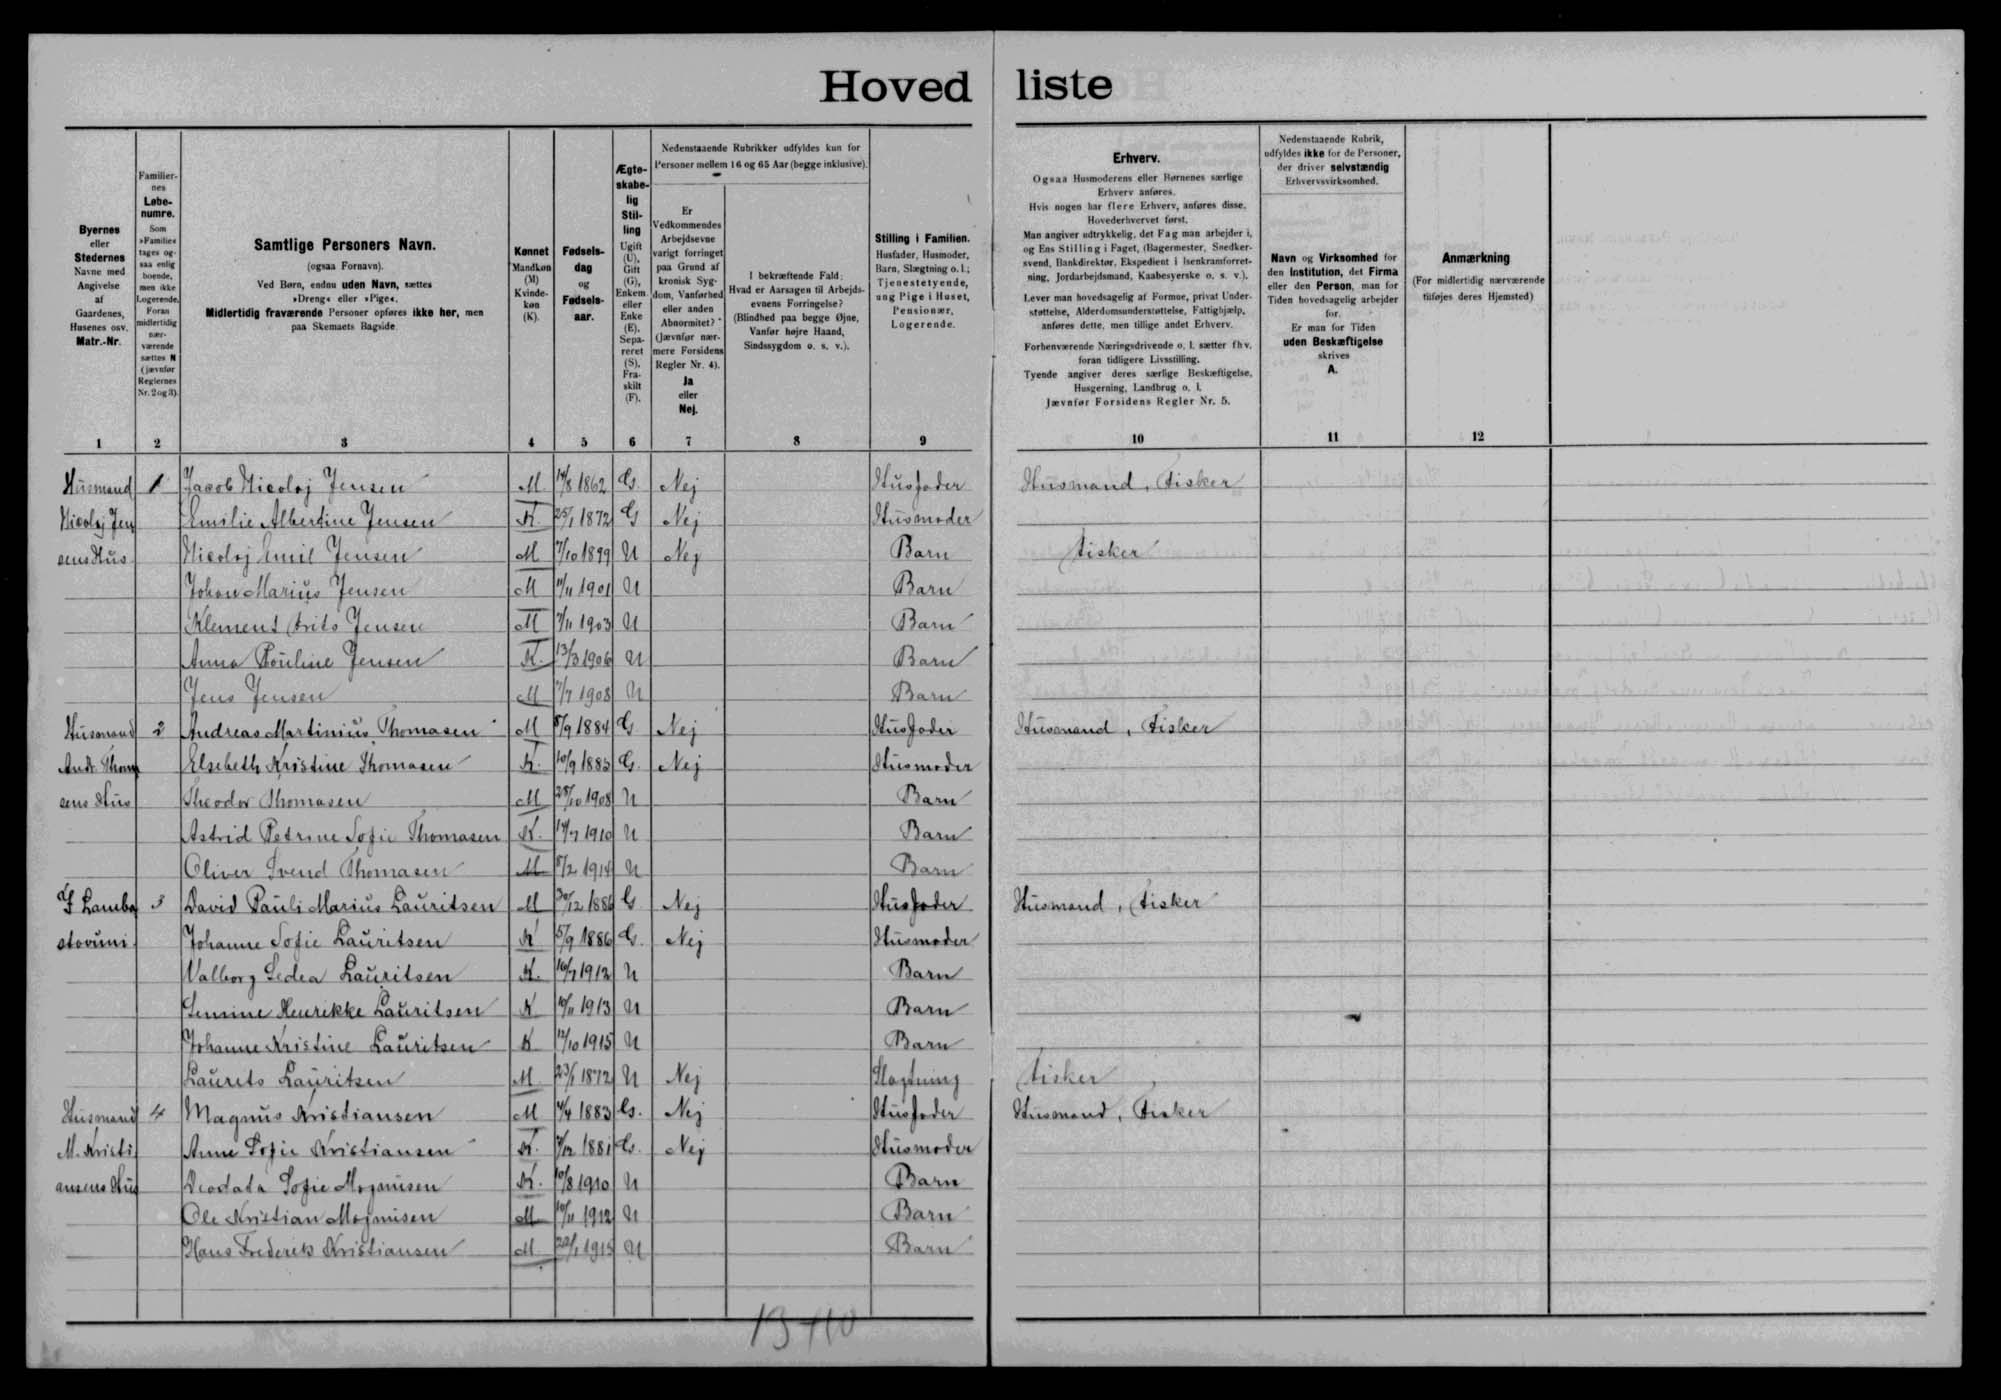 Hovedliste
Byernes
eller
Stedernes
Navne med
Angivelse
af
Gaardenes,
Husenes osv.
Matr.-Nr.
Familier-
nes
Løbe-
numre.
Som
»Familie«
tages og-
saa enlig
boende,
men ikke
Logerende.
Foran
midlertidig
nær-
værende
sættes N
(jævnfør
Reglernes
Nr. 2 og 3).
Samtlige Personers Navn.
(ogsaa Fornavn).
Ved Børn, endnu uden Navn, sættes
»Dreng« eller »Pige«.
Midlertidig fraværende Personer opføres ikke her, men
paa Skemaets Bagside.
Kønnet
Mandkøn
(M)
Kvinde-
køn
(K).
Fødsels-
dag
og
Fødsels-
aar.
Ægte-
skabe-
lig
Stil-
ling
Ugift
(U),
Gift
(G),
Enkem.
eller
Enke
(E),
Sepa-
reret
(S),
Fra-
skilt
(F).
Nedenstaaende Rubrikker udfyldes kun for
Personer mellem 16 og 65 Aar (begge inklusive).
Er
Vedkommendes
Arbejdsevne
varigt forringet
paa Grund af
kronisk Syg-
dom, Vanførhed
eller anden
Abnormitet?
(Jævnfør nær-
mere Forsidens
Regler Nr. 4).
Ja
eller
Nej.
I bekræftende Fald:
Hvad er Aarsagen til Arbejds-
evnens Forringelse?
(Blindhed paa begge Øjne,
Vanfør højre Haand,
Sindssygdom o. s. v.).
Stilling i Familien.
Husfader, Husmoder,
Barn, Slægtning o. l.;
Tjenestetyende,
ung Pige i Huset,
Pensionær,
Logerende.
Erhverv.
Ogsaa Husmoderens eller Børnenes særlige
Erhverv anføres.
Hvis nogen har flere Erhverv, anføres disse,
Hovederhvervet først.
Man angiver udtrykkelig, det Fag man arbejder i,
og Ens Stilling i Faget, (Bagermester, Snedker-
svend, Bankdirektør, Ekspedient i Isenkramforret-
ning, Jordarbejdsmand, Kaabesyerske o. s. v.).
Lever man hovedsagelig af Formue, privat Under-
støttelse, Alderdomsunderstøttelse, Fattighjælp,
anføres dette, men tillige andet Erhverv.
Forhenværende Næringsdrivende o. l. sætter fhv.
foran tidligere Livsstilling.
Tyende angiver deres særlige Beskæftigelse,
Husgerning, Landbrug o. l.
Jævnfør Forsidens Regler Nr. 5.
Nedenstaaende Rubrik,
udfyldes ikke for de Personer,
der driver selvstændig
Erhvervsvirksomhed.
Navn og Virksomhed for
den Institution, det Firma
eller den Person, man for
Tiden hovedsagelig arbejder
for.
Er man for Tiden
uden Beskæftigelse
skrives
A.
Anmærkning
(For midlertidig nærværende
tilføjes deres Hjemsted)
1 2 3 4 5 6 7 8 9 10 11 12
Husmand 1 Jacob Nicolaj Jensen M 14/8 1862 G. Nej Husfader Husmand, Fisker
Nicolaj Jen Emilie Albertine Jensen K. 25/1 1872 G Nej Husmoder
sens Hus Nicolaj Emil Jensen M 7/10 1899 U Nej Barn Fisker
Johan Marius Jensen M 11/11 1901 U Barn
Klement Frits Jensen M 7/11 1903 U Barn
Anna Pouline Jensen K. 13/3 1906 U Barn
Jens Jensen M 7/7 1908 U Barn
Husmand 2 Andreas Martinius Thomasen M 8/9 1884 G Nej Husfader Husmand, Fisker
Andr. Thom Elsebeth Kristine Thomasen K. 10/9 1883 G. Nej Husmoder
sens Hus Theodor Thomasen M 28/10 1908 U Barn
Astrid Petrine Sofie Thomasen K. 14/7 1910 U Barn
Oliver Svend Thomasen M 8/2 1914 U Barn
3 David Pauli Marius Lauritsen M 30/12 1886 G Nej Husfader Husmand, Fisker
Johanne Sofie Lauritsen K 5/9 1886 G. Nej Husmoder
Valborg Sedea Lauritsen K. 16/7 1912 U Barn
Henrikke Lauritsen K 10/11 1913 U Barn
Johanne Kristine Lauritsen K 12/10 1915 U Barn
Laurits Lauritsen M 23/1 1872 U Nej Slægtning Fisker
Husmand 4 Magnus Kristiansen M 4/4 1883 G. Nej Husfader Husmand, Fisker
M. Kristi Anne Sofie Kristiansen K. 7/12 1881 G. Nej Husmoder
ansens Hus Deodata Sofie Magnusen K. 10/8 1910 U Barn
Ole Kristian Magnusen M 10/11 1912 U Barn
Hans Frederik Kristiansen M 1915 U Barn
13+10